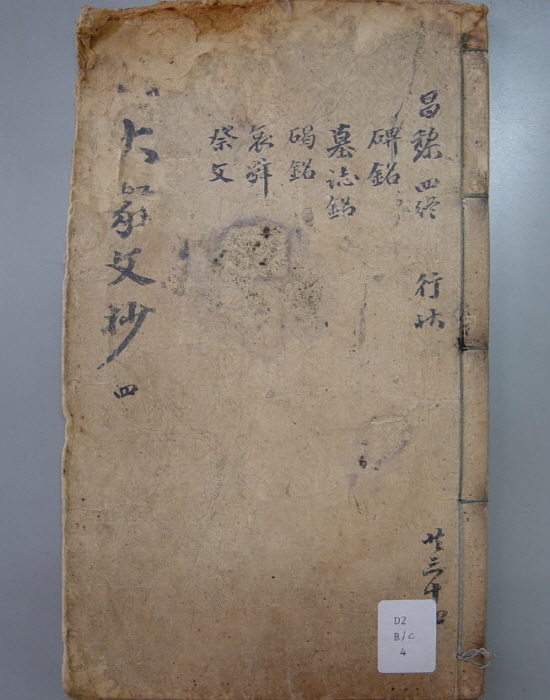 昌黎 四終 行狀
碑銘
墓誌銘
碣銘
哀辭
祭文
大家文抄 四
共三十四
D2
B/c
4